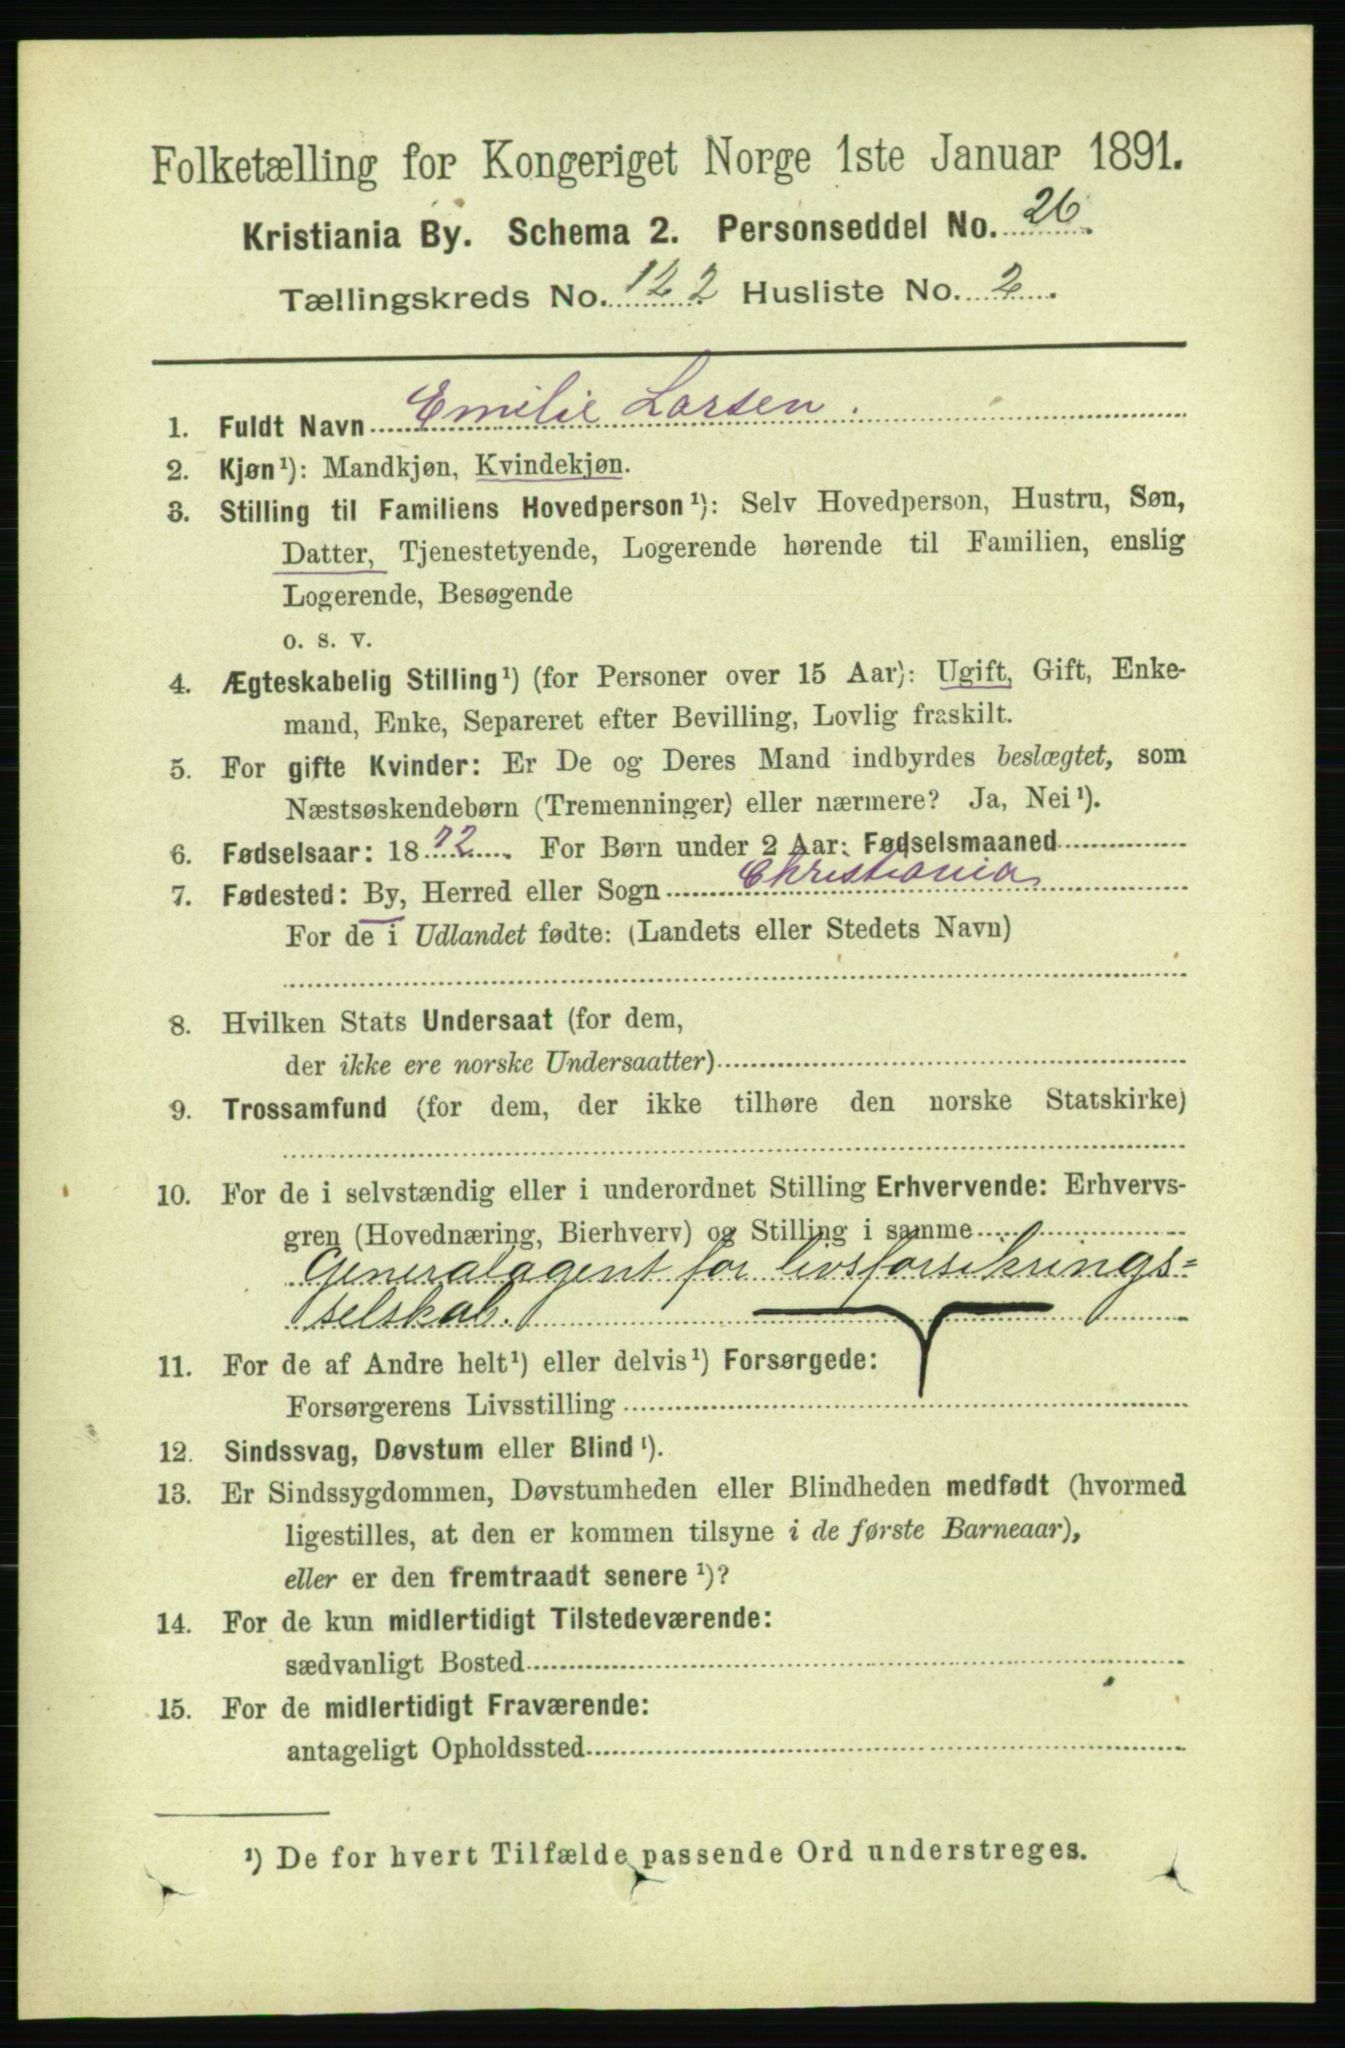 Folketælling for Kongeriget Norge 1ste Januar 1891.
Kristiania By. Schema 2. Personseddel No. 26.
Tællingskreds No. 122 Husliste No. 2.
1. Fuldt Navn Emilie Larsen.
2. Kjøn¹): Mandkjøn, Kvindekjøn.
3. Stilling til Familiens Hovedperson¹): Selv Hovedperson, Hustru, Søn,
Datter, Tjenestetyende, Logerende hørende til Familien, enslig
Logerende, Besøgende
o. s. v.
4. Ægteskabelig Stilling¹) (for Personer over 15 Aar): Ugift, Gift, Enke-
mand, Enke, Separeret efter Bevilling, Lovlig fraskilt.
5. For gifte Kvinder: Er De og Deres Mand indbyrdes beslægtet, som
Næstsøskendebørn (Tremenninger) eller nærmere? Ja, Nei¹).
6. Fødselsaar: 1872. For Børn under 2 Aar: Fødselsmaaned
7. Fødested: By, Herred eller Sogn Christiania
For de i Udlandet fødte: (Landets eller Stedets Navn)
8. Hvilken Stats Undersaat (for dem,
der ikke ere norske Undersaatter)
9. Trossamfund (for dem, der ikke tilhøre den norske Statskirke)
10. For de i selvstændig eller i underordnet Stilling Erhvervende: Erhvervs-
gren (Hovednæring, Bierhverv) og Stilling i samme
Generalagent for livsforsikrings=
selskab.
11. For de af Andre helt¹) eller delvis¹) Forsørgede:
Forsørgerens Livsstilling
12. Sindssvag, Døvstum eller Blind¹).
13. Er Sindssygdommen, Døvstumheden eller Blindheden medfødt (hvormed
ligestilles, at den er kommen tilsyne i de første Barneaar),
eller er den fremtraadt senere¹)?
14. For de kun midlertidigt Tilstedeværende:
sædvanligt Bosted
15. For de midlertidigt Fraværende:
antageligt Opholdssted
¹) De for hvert Tilfælde passende Ord understreges.